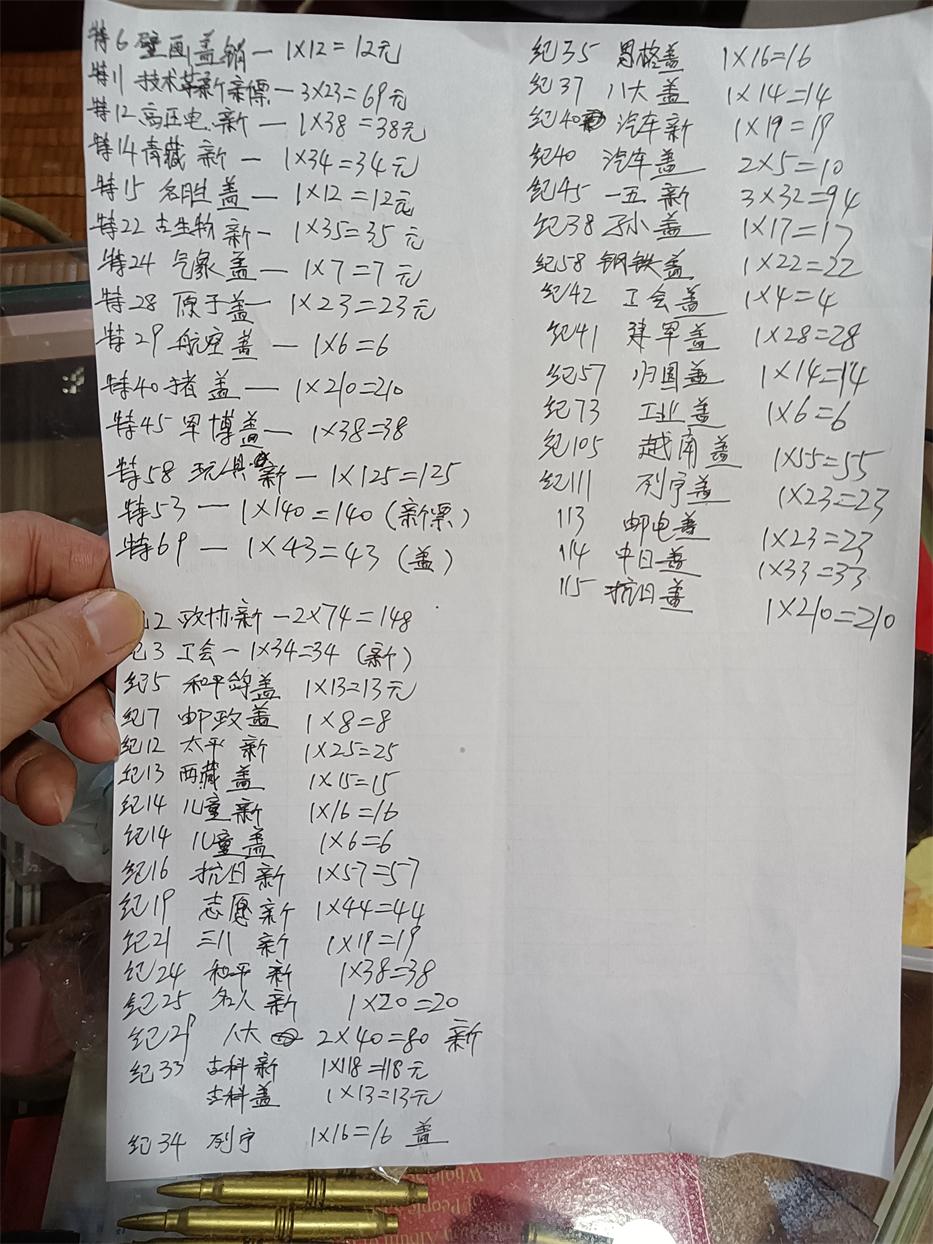 特6 壁画盖销 — 1×12=12元
特11 技术革新新票 — 3×23=69元
特12 高压电.新 — 1×38=38元
特14 青藏 新 — 1×34=34元
特15 名胜 盖 — 1×12=12元
特22 古生物 新 - 1×35=35元
特24 气象 盖 — 1×7=7元
特28 原子盖 — 1×23=23元
特29 航空 盖 — 1×6=6
特40 猪 盖 — 1×210=210
特45 军博盖 — 1×38=38
特58 玩具 新 — 1×125=125
特53 — 1×140=140 (新票)
特69 — 1×43=43 (盖)
2 政协新 — 2×74=148
纪3 工会 — 1×34=34 (新)
纪5 和平鸽盖 1×13=13元
纪7 邮政盖 1×8=8
纪12 太平 新 1×25=25
纪13 西藏 盖 1×15=15
纪14 儿童新 1×16=16
纪14 儿童盖 1×6=6
纪16 抗日新 1×57=57
纪19 志愿新 1×44=44
纪21 三八 新 1×19=19
纪24 和平 新 1×38=38
纪25 名人 新 1×20=20
纪29 人大 2×40=80 新
纪33 古科新 1×118=118元
古科盖 1×13=13元
纪34 列宁 1×16=16 盖
纪35 恩格盖 1×16=16
纪37 八大 盖 1×14=14
纪40 汽车新 1×19=19
纪40 汽车盖 2×5=10
纪45 一五 新 3×32=94
纪38 孙小 盖 1×17=17
纪58 钢铁盖 1×22=22
纪42 工会盖 1×4=4
纪41 建军盖 1×28=28
纪57 归国盖 1×14=14
纪73 工业盖 1×6=6
纪105 越南盖 1×55=55
纪111 列宁盖 1×23=23
113 邮电盖 1×23=23
114 中日盖 1×33=33
115 抗日盖 1×210=210
People's
Album of